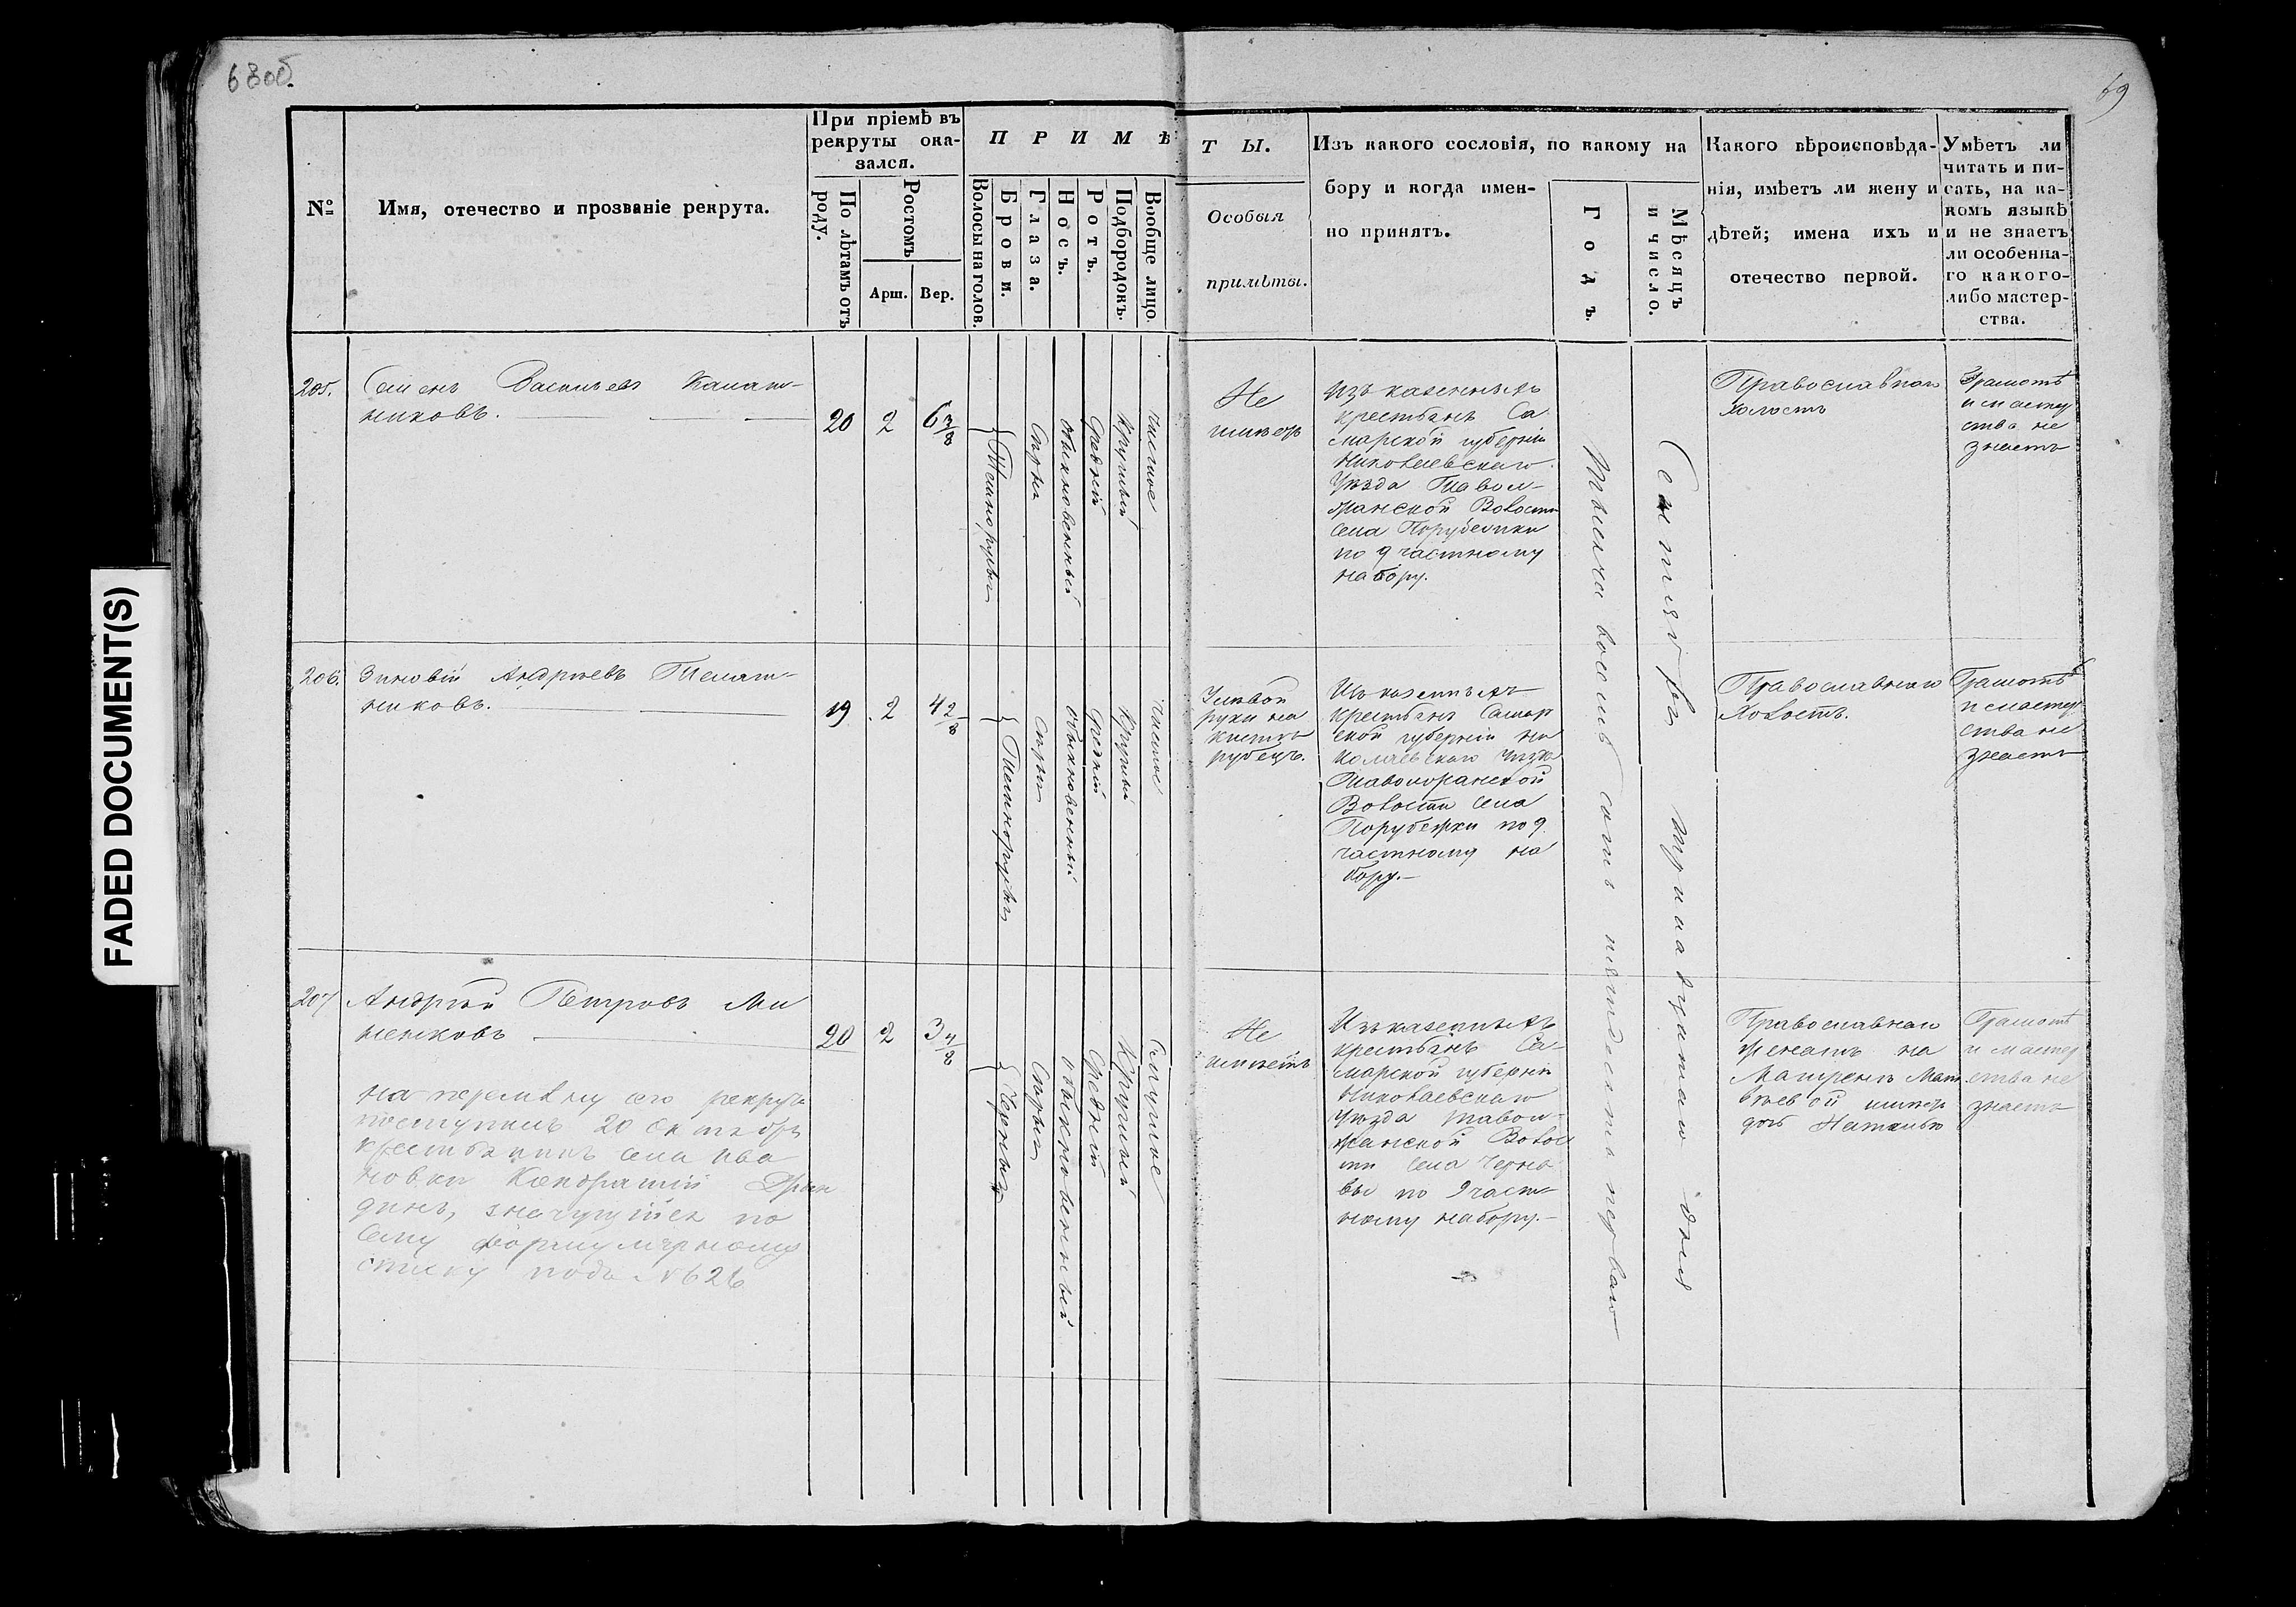 68об.
69
FADED DOCUMENT(S)
№
Имя, отечество и прозваніе рекрута.
При пріемѣ въ
рекруты ока-
зался.
По лѣтамъ отъ
роду.
Ростомъ
Арш.
Вер.
ПРИМѢ
Волосы на голов.
Брови.
Глаза.
Носъ.
Ротъ.
Подбородокъ.
Вообще лицо.
ТЫ.
Особыя
примѣты.
Изъ какого сословія, по какому на
бору и когда имен-
но принятъ.
Годъ.
Мѣсяцъ
и число.
Какого вѣроисповѣда-
нія, имѣетъ ли жену и
дѣтей; имена ихъ и
отечество первой.
Умѣетъ ли
читать и пи-
сать, на ка-
комъ языкѣ
и не знаетъ
ли особенна-
го какого-
либо мастер-
ства.
205.
Семенъ Васильевъ Калаш-
никовъ.
20
2
6 3/8
Темнорусыя
Сѣрыя
обыкновенный
Средній
Круглый
чистое
Не
имѣетъ
Изъ казенныхъ
крестьянъ Са-
марской губерніи
Николаевскаго
Уѣзда Тавол-
жанской Волости
Села Порубежки
по 9 частному
набору.
Тысяча восемь сотъ пятьдесятъ перваго
Сентября тринадцатаго дня
Православнаго
Холостъ
Грамотѣ
и мастер
ства не
знаетъ
206.
Зиновій Андреевъ
никовъ.
19
2
4 2/8
Темнорусыя
Сѣрыя
обыкновенный
Средній
Круглый
Чистое
У лѣвой
руки на
кисти
рубецъ.
Изъ казенныхъ
Крестьянъ Самар
ской губерніи Ни
колаевскаго Уѣзда
Таволжанской
Волости Села
Порубежки по 9
частному на
бору.-
Православнаго
Холостъ.
Грамотѣ
и мастер
ства не
знаетъ
207
Андрей Петровъ Ми
ненковъ
20
2
3 4/8
Черныя
Сѣрыя
обыкновенный
Средній
Круглый
Смуглое
Не
имѣетъ
Изъ казенныхъ
крестьянъ Са-
марской губерніи
Николаевскаго
Уѣзда Тавол-
жанской Волос
ти Села Черна
вы по 9 част-
ному набору.-
Православнаго
Женатъ на
Матренѣ Мат
вѣевой имѣетъ
дочь Наталью
Грамотѣ
и мастер
ства не
знаетъ
На перемѣну его рекрута
поступилъ 20 Октября
крестьянинъ села Ива
новки Кондратій
динъ, значущійся по
сему формулярному
списку подъ № 626